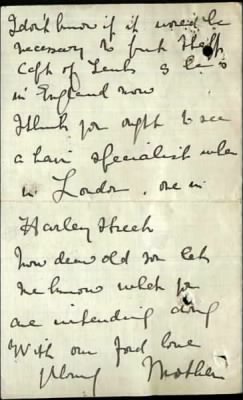 I don't know if it would be
necessary to
in England now
I think you ought to see
a hair specialist when
in London, one in
Harley Street
Now dear old son let
me know what you
are intending doing
With our fond love
Mother